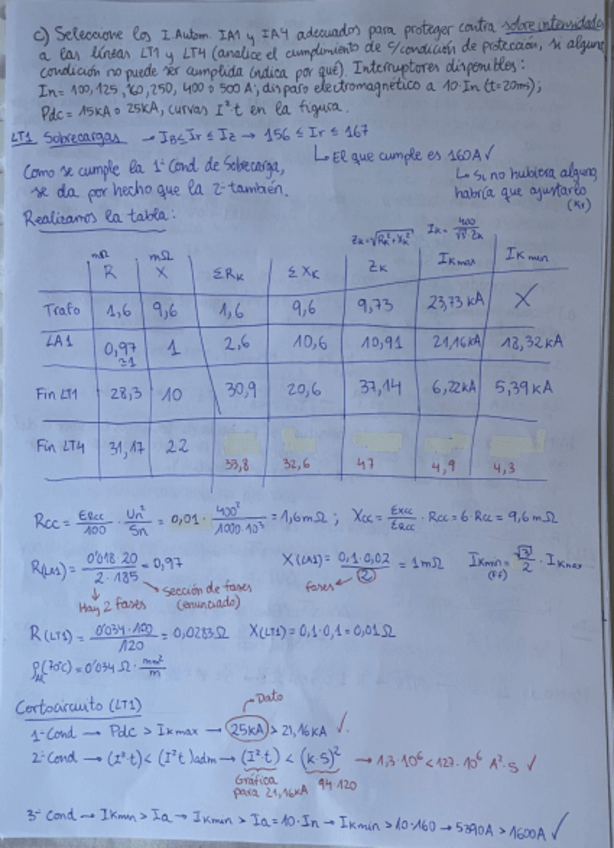 c) Seleccione los I. Autom. IA1 y IA4 adecuados para proteger contra sobreintensidades
a las líneas LT1 y LT4 (analice el cumplimiento de c/condición de protección, si alguna
condición no puede ser cumplida indica por qué). Interruptores disponibles:
In = 100, 125, 160, 250, 400 o 500 A; disparo electromagnético a 10·In (t=20ms);
Pdc = 15kA o 25kA, curvas I²·t en la figura.
LT1 Sobrecargas → IB ≤ Ir ≤ Iz → 156 ≤ Ir ≤ 167
↳ El que cumple es 160A ✓
Como se cumple la 1ª Cond de Sobrecarga,
se da por hecho que la 2ª también.
↳ Si no hubiera alguno
habría que ajustarlo
(Kr)
Realizamos la tabla:
Zk=√Rk²+Xk² Ik = 400/√3·Zk
mΩ R mΩ X ΣRk ΣXk Zk Ikmax Ikmin
Trafo 1,6 9,6 1,6 9,6 9,73 23,73 kA X
LA1 0,97 ≈1 1 2,6 10,6 10,91 21,16kA 18,32kA
Fin LT1 28,3 10 30,9 20,6 37,14 6,22kA 5,39kA
Fin LT4 31,17 22 33,8 32,6 47 4,9 4,3
Rcc = εRcc/100 · Un²/Sn = 0,01 · 400²/1000·10³ = 1,6mΩ ; Xcc = εxcc/εRcc · Rcc = 6·Rcc = 9,6mΩ
R(LA1) = 0'018·20/2·185 = 0,97 X(LA1) = 0,1·0,02/2 = 1mΩ Ikmin (FF) = √3/2 · Ikmax
Hay 2 fases
Sección de fases
(enunciado)
fases
R(LT1) = 0'034·100/120 = 0,0283Ω X(LT1) = 0,1·0,1 = 0,01Ω
(70ºC) = 0'034 Ω · mm²/m
Cortocircuito (LT1)
Dato
1ª Cond → Pdc > Ikmax → 25kA > 21,16kA ✓.
2ª Cond → (I²·t) < (I²t)adm → (I²·t) < (k·S)² → 1,3·10⁶ < 127·10⁶ A²·S ✓
Gráfica
para 21,16kA
94·120
3ª Cond → Ikmin > Ia → Ikmin > Ia = 10·In → Ikmin > 10·160 → 5390A > 1600A ✓